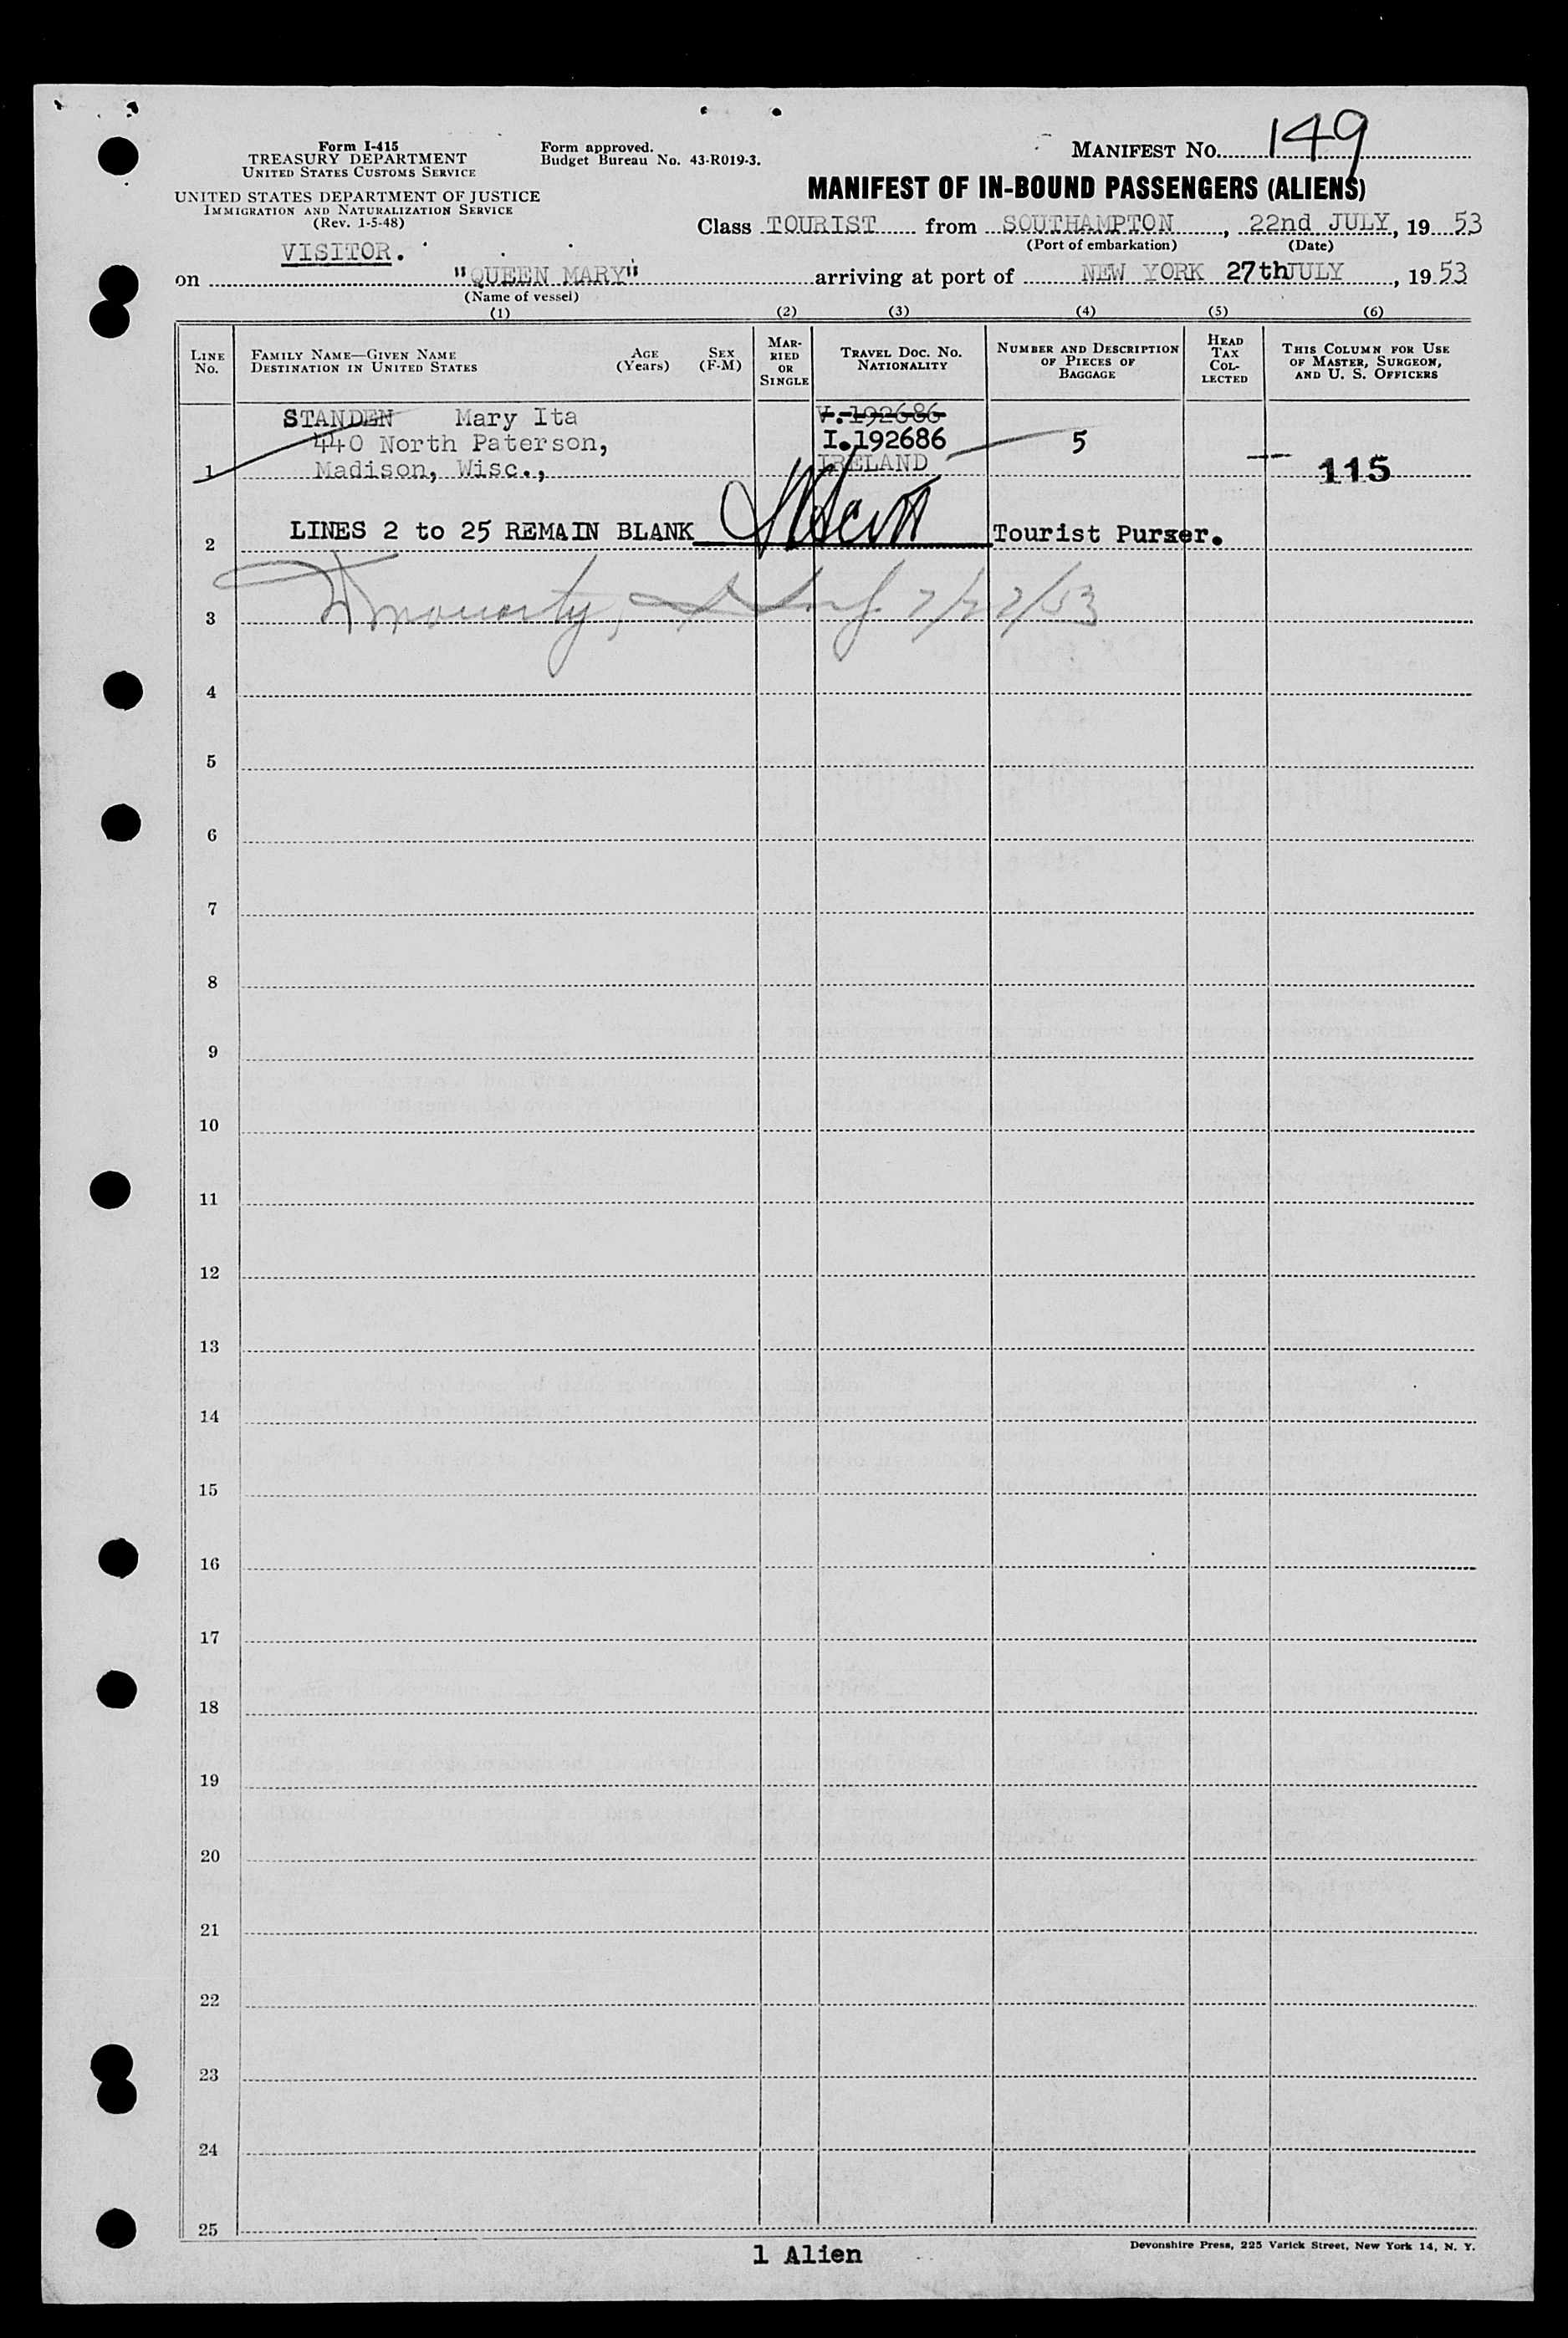 Form I-415
TREASURY DEPARTMENT
UNITED STATES CUSTOMS SERVICE
UNITED STATES DEPARTMENT OF JUSTICE
IMMIGRATION AND NATURALIZATION SERVICE
(Rev. 1-5-48)
Form approved.
Budget Bureau No. 43-R019-3.
MANIFEST NO. 149
MANIFEST OF IN-BOUND PASSENGERS (ALIENS)
Class TOURIST from SOUTHAMPTON, 22nd JULY, 19 53
(Port of embarkation) (Date)
VISITOR.
on "QUEEN MARY" arriving at port of NEW YORK 27th JULY, 19 53
(Name of vessel)
(1) (2) (3) (4) (5) (6)
LINE NO. FAMILY NAME—GIVEN NAME DESTINATION IN UNITED STATES AGE (Years) SEX (F-M) MARRIED OR SINGLE TRAVEL DOC. NO. NATIONALITY NUMBER AND DESCRIPTION OF PIECES OF BAGGAGE HEAD TAX COLLECTED THIS COLUMN FOR USE OF MASTER, SURGEON, AND U. S. OFFICERS
STANDEN Mary Ita V.192686
440 North Paterson, I.192686 5
1 Madison, Wisc., IRELAND 115
2 LINES 2 to 25 REMAIN BLANK Tourist Purser.
3 7/27/53
4
5
6
7
8
9
10
11
12
13
14
15
16
17
18
19
20
21
22
23
24
25
1 Alien
Devonshire Press, 225 Varick Street, New York 14, N. Y.